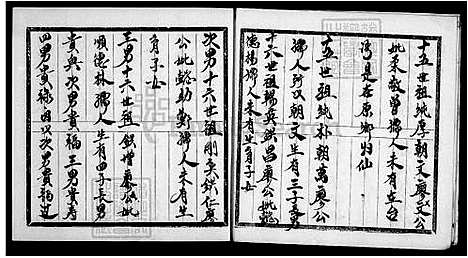 十五世祖純厚朝文廖文公
妣柔敏曾孺人未有生台
湾是在原鄉归仙
十五世祖純朴朝萬廖公
孺人阿汉朝文生有三子長男
十六世祖楊英欽昌廖公妣懿
德楊孺人未有生育子女
次男十六世祖剛英欽仁廖
公妣懿助鄭孺人未有生
育子女
三男十六世祖欽增廖公妣
順德林孺人生有四子長男
貴興次男貴福三男貴寿
四男貴祿因以次男貴福过